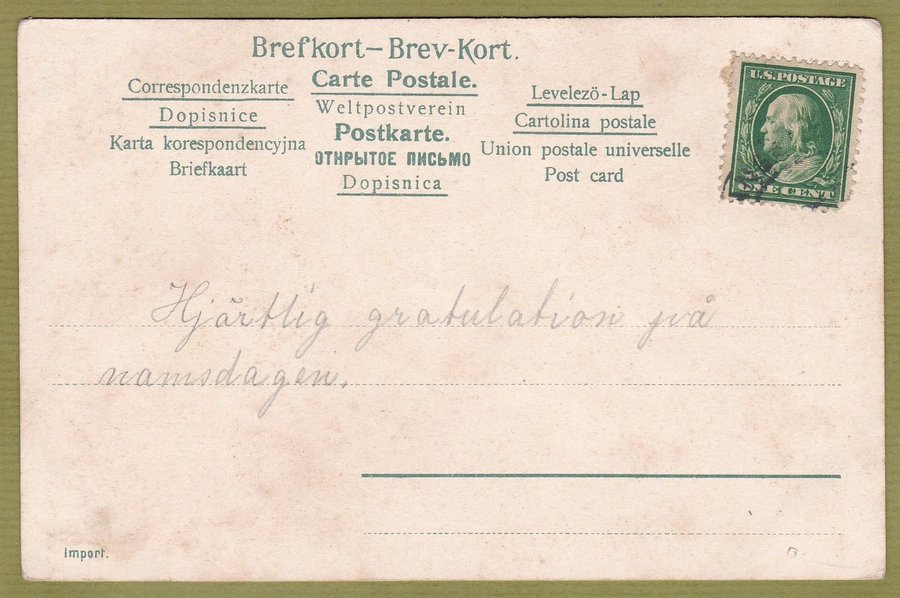 Brefkort – Brev-Kort.
Correspondenzkarte
Dopisnice
Karta korespondencyjna
Briefkaart
Carte Postale.
Weltpostverein
Postkarte.
ОТКРЫТОЕ ПИСЬМО
Dopisnica
Levelező-Lap
Cartolina postale
Union postale universelle
Post card
U.S. POSTAGE
ONE CENT
Hjärtlig gratulation på
namsdagen.
Import.